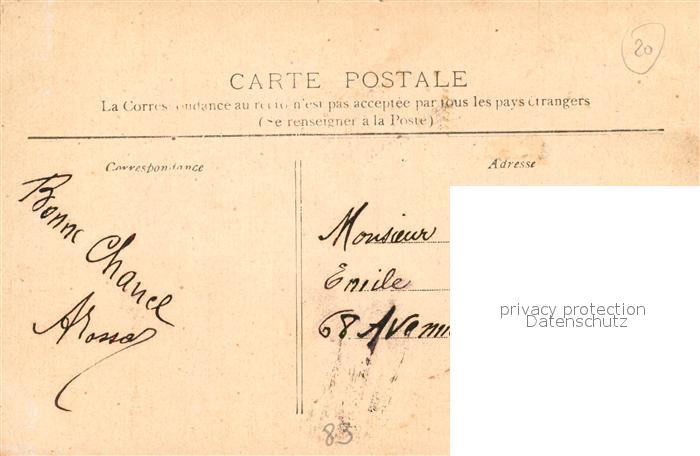 20
CARTE POSTALE
La Correspondance au recto n'est pas acceptée par tous les pays étrangers
(Se renseigner à la Poste)
Correspondance
Adresse
Bonne
Chance
Monsieur
Emile
68 Avenu
privacy protection
Datenschutz
83